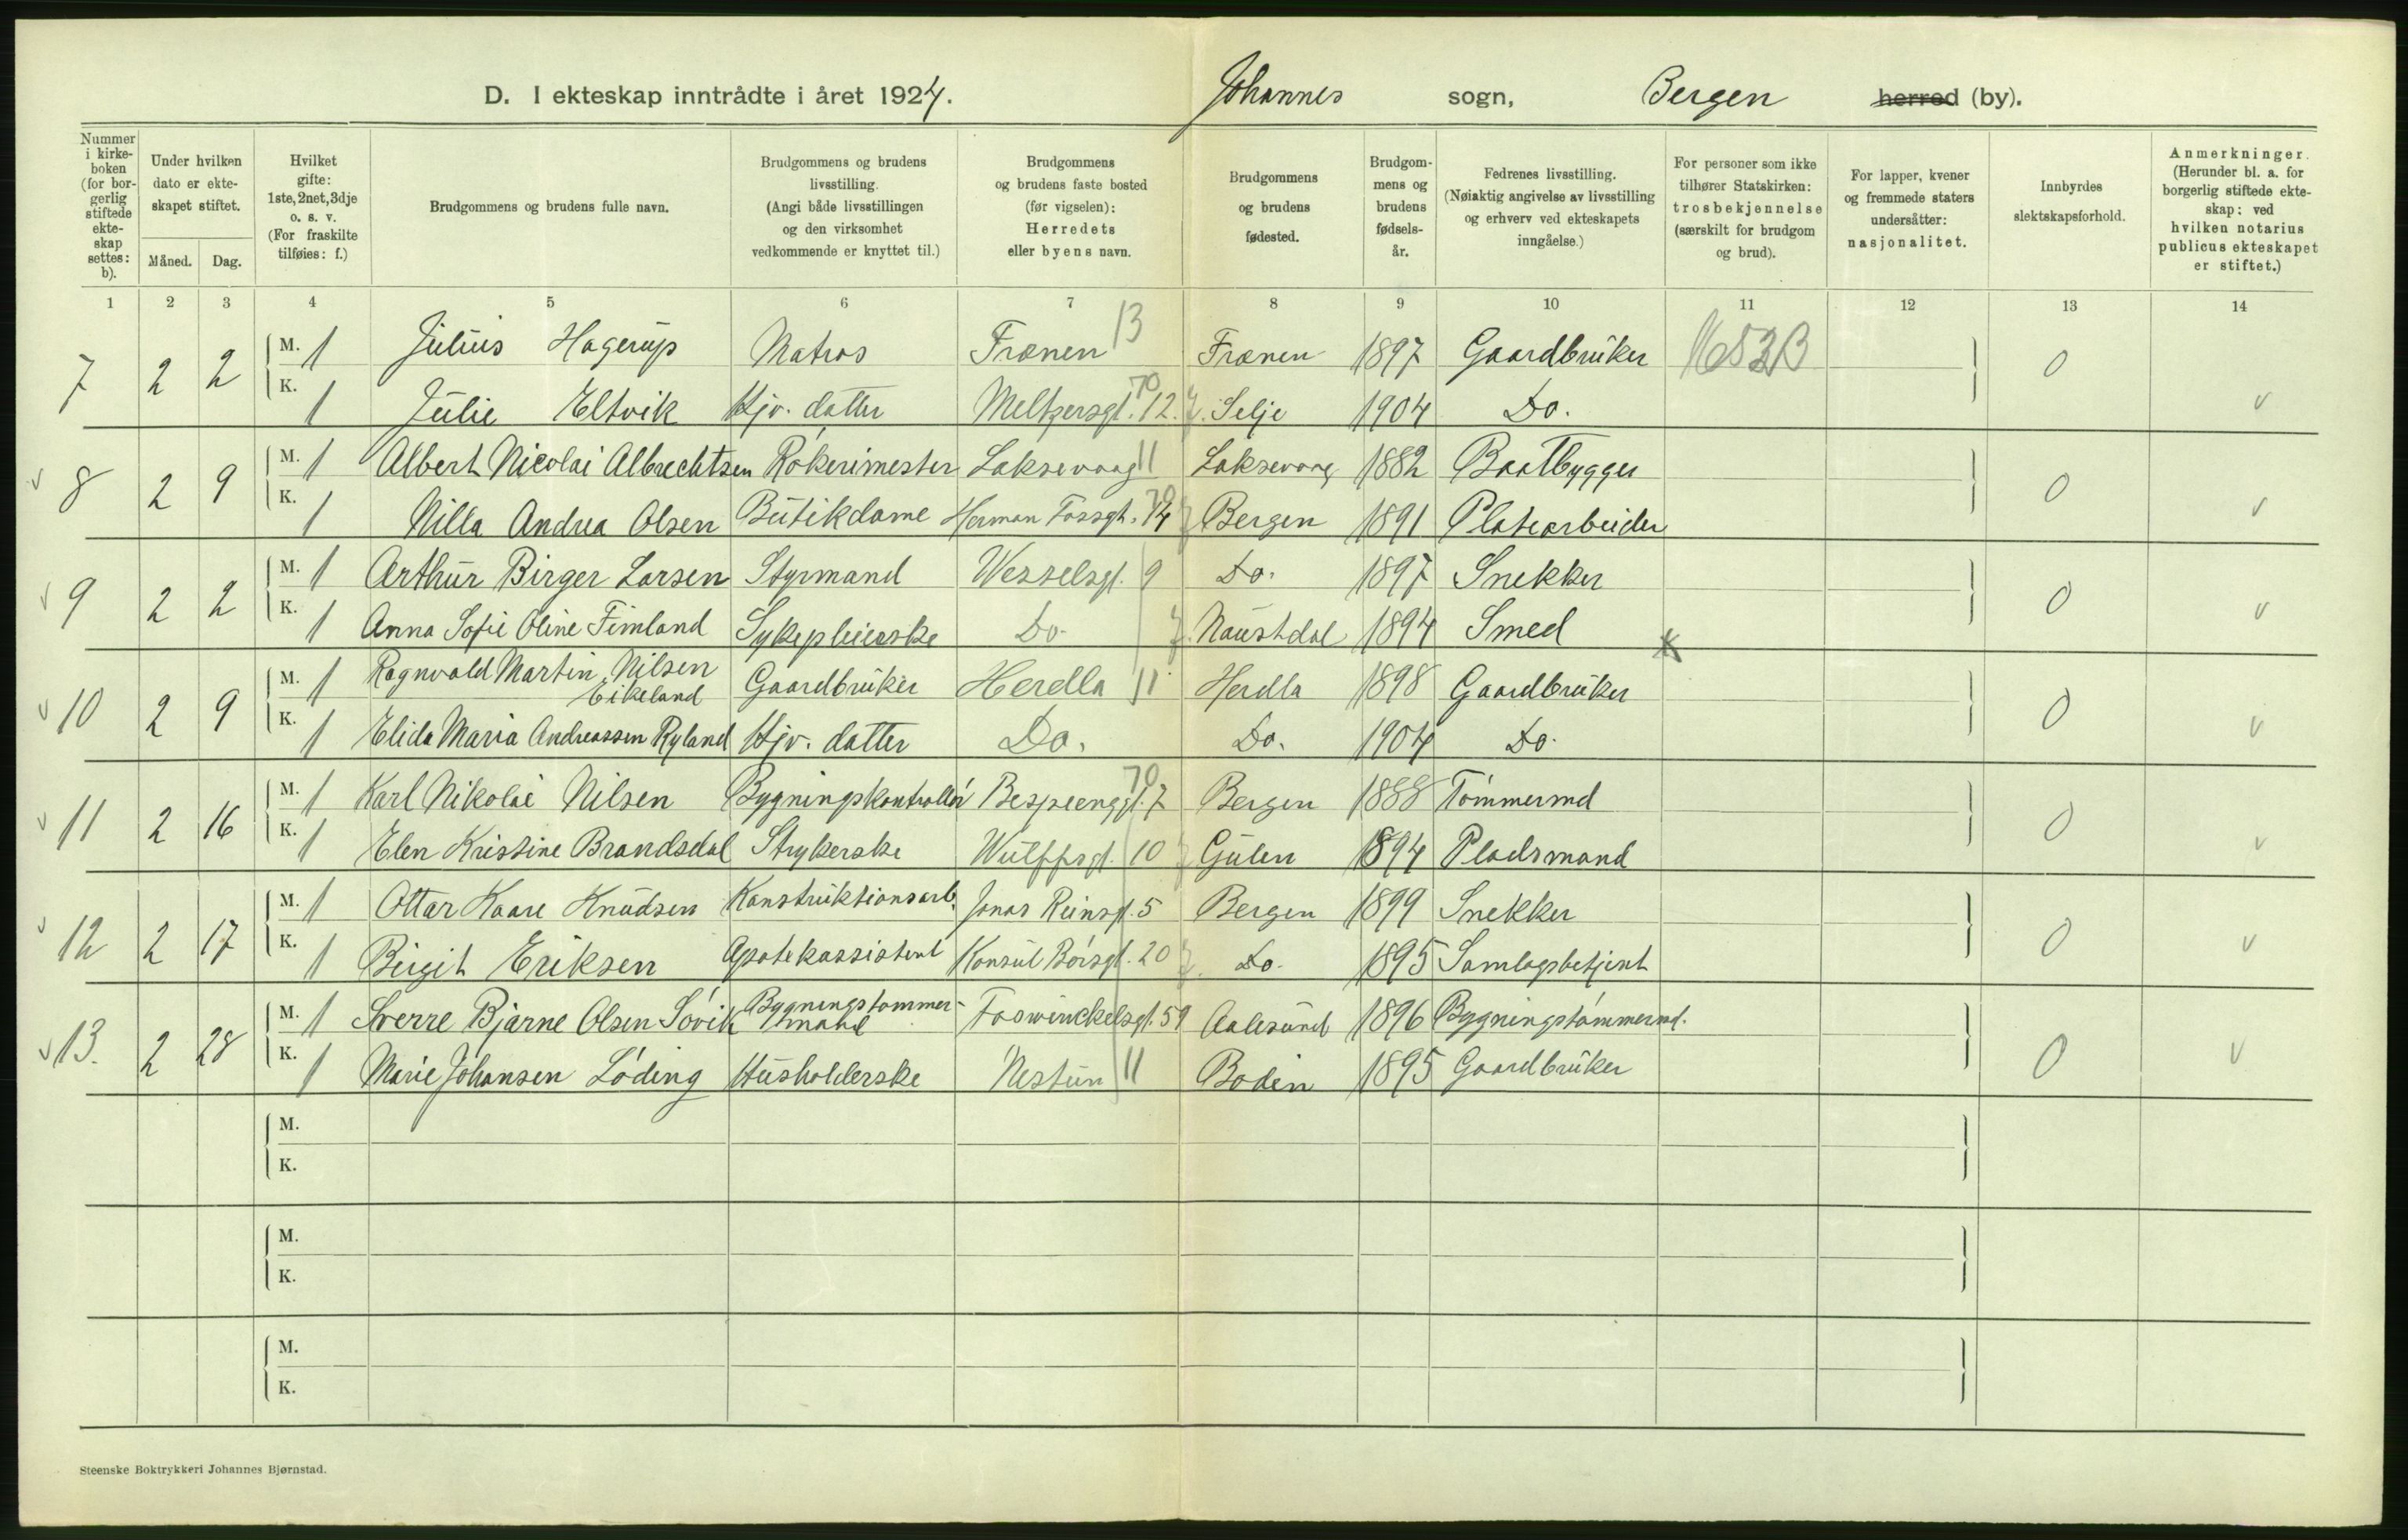 D. I ekteskap inntrådte i året 1924. Johannes sogn, Bergen herred (by).
Nummer i kirke-boken (for bor-gerlig stiftede ekte-skap settes: b).
Under hvilken dato er ekte-skapet stiftet.
Måned. Dag.
Hvilket gifte: 1ste, 2net, 3dje o. s. v. (For fraskilte tilføies: f.)
Brudgommens og brudens fulle navn.
Brudgommens og brudens livsstilling. (Angi både livsstillingen og den virksomhet vedkommende er knyttet til.)
Brudgommens og brudens faste bosted (før vigselen): Herredets eller byens navn.
Brudgommens og brudens fødested.
Brudgom-mens og brudens fødsels-år.
Fedrenes livsstilling. (Nøiaktig angivelse av livsstilling og erhverv ved ekteskapets inngåelse.)
For personer som ikke tilhører Statskirken: trosbekjennelse (særskilt for brudgom og brud).
For lapper, kvener og fremmede staters undersåtter: nasjonalitet.
Innbyrdes slektskapsforhold.
Anmerkninger. (Herunder bl. a. for borgerlig stiftede ekte-skap: ved hvilken notarius publicus ekteskapet er stiftet.)
1 2 3 4 5 6 7 8 9 10 11 12 13 14
7 2 2 M. 1 Julius Hagerup Matros Frænen 13 Frænen 1897 Gaardbruker 1653B 0
K. 1 Julie Eltvik Hjv. datter Meltzersgt. 12. 70 Selje 1904 Do. v
v 8 2 9 M. 1 Albert Nicolai Albrechtsen Rökerimester Laksevaag 11 Laksevaag 1882 Baatbygger 0
K. 1 Nilla Andrea Olsen Butikdame Herman Fossgt. 14 70 Bergen 1891 Platearbeider v
v 9 2 2 M. 1 Arthur Birger Larsen Styrmand Wesselsgt. 9 Do. 1897 Snekker 0
K. 1 Anna Sofie Oline Fimland Sykepleierske Do. Naustdal 1894 Smed x v
v 10 2 9 M. 1 Ragnvald Martin Nilsen Eikeland Gaardbruker Herdla 11 Herdla 1898 Gaardbruker 0
K. 1 Elida Maria Andreassen Ryland Hjv. datter Do. Do. 1904 Do. v
v 11 2 16 M. 1 Karl Nikolai Nilsen Bygningskontrollör 70 Bergen 1888 Tömmermd 0
K. 1 Elen Kristine Brandsdal Strykerske Wulffsgt. 10 Gulen 1894 Pladsmand v
v 12 2 17 M. 1 Ottar Kaare Knudsen Konstruktionsarb. Jonas Reinsgt. 5 Bergen 1899 Snekker 0
K. 1 Birgit Eriksen Apotekassistent Konsul Börsgt. 20 Do. 1895 Samlagsbetjent v
v 13. 2 28 M. 1 Sverre Bjarne Olsen Sövik Bygningstömmer-mand Foswinckelsgt. 59 Aalesund 1896 Bygningstömmermd. 0
K. 1 Marie Johansen Löding Husholderske Nestun 11 Bodin 1895 Gaardbruker v
M.
K.
M.
K.
M.
K.
Steenske Boktrykkeri Johannes Bjørnstad.